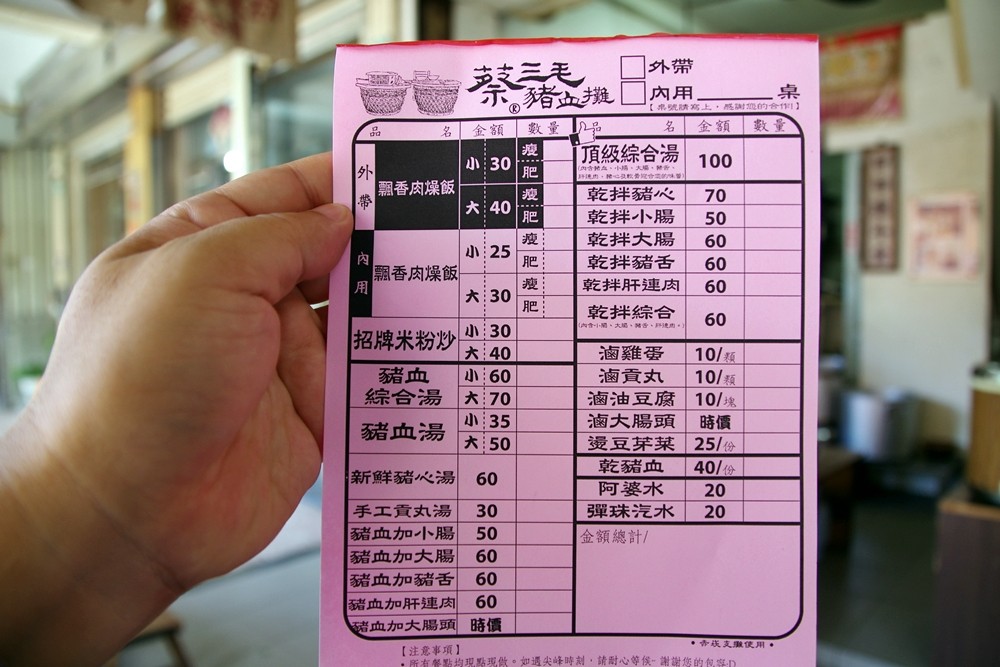 蔡三毛
豬血攤
®
外帶
內用 桌
【桌號請寫上，感謝您的合作!】
品名 金額 數量
外帶
飄香肉燥飯 小 30 瘦
肥
大 40 瘦
肥
內用
飄香肉燥飯 小 25 瘦
肥
大 30 瘦
肥
招牌米粉炒 小 30
大 40
豬血
綜合湯 小 60
大 70
豬血湯 小 35
大 50
新鮮豬心湯 60
手工貢丸湯 30
豬血加小腸 50
豬血加大腸 60
豬血加豬舌 60
豬血加肝連肉 60
豬血加大腸頭 時價
品名 金額 數量
頂級綜合湯 100
乾拌豬心 70
乾拌小腸 50
乾拌大腸 60
乾拌豬舌 60
乾拌肝連肉 60
乾拌綜合 60
(內含小腸、大腸、豬舌、肝連肉。)
滷雞蛋 10/顆
滷貢丸 10/顆
滷油豆腐 10/塊
滷大腸頭 時價
燙豆芽菜 25/份
乾豬血 40/份
阿婆水 20
彈珠汽水 20
金額總計/
【注意事項】
•所有餐點均現點現做。如遇尖峰時刻，請耐心等候~謝謝您的包容:D